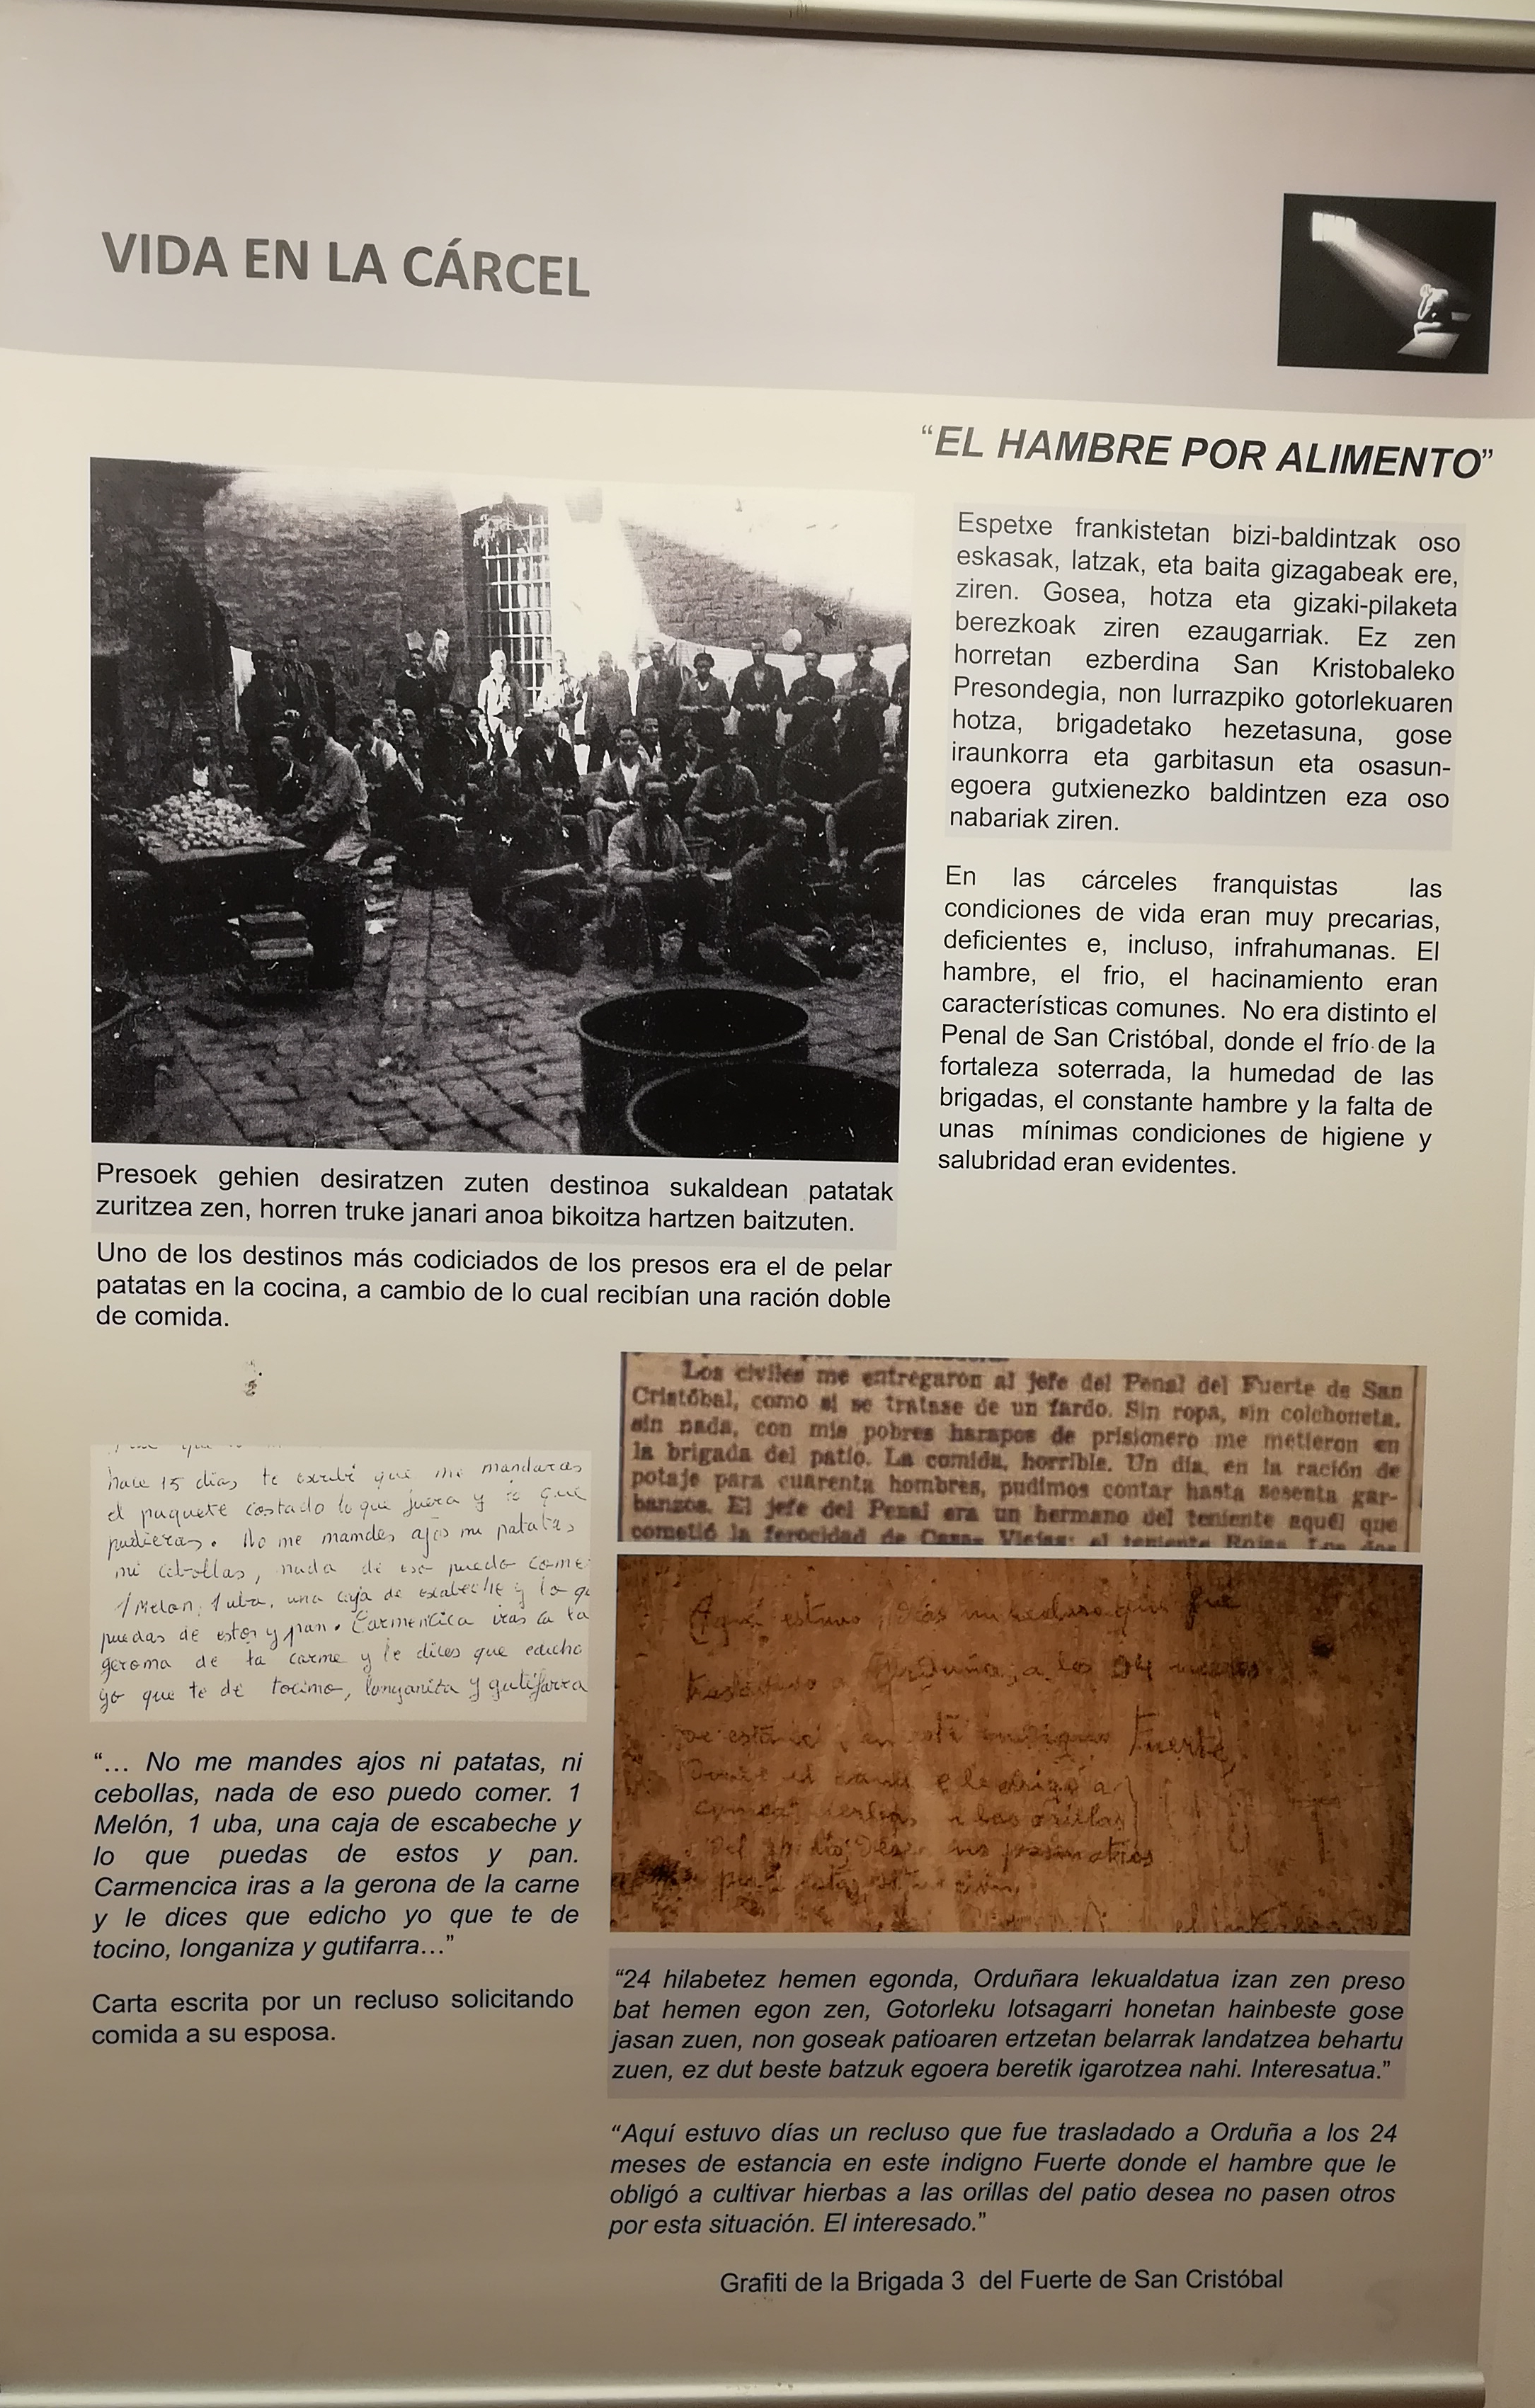 VIDA EN LA CÁRCEL
“EL HAMBRE POR ALIMENTO”
Espetxe frankistetan bizi-baldintzak oso
eskasak, latzak, eta baita gizagabeak ere,
ziren. Gosea, hotza eta gizaki-pilaketa
berezkoak ziren ezaugarriak. Ez zen
horretan ezberdina San Kristobaleko
Presondegia, non lurrazpiko gotorlekuaren
hotza, brigadetako hezetasuna, gose
iraunkorra eta garbitasun eta osasun-
egoera gutxienezko baldintzen eza oso
nabariak ziren.
En las cárceles franquistas las
condiciones de vida eran muy precarias,
deficientes e, incluso, infrahumanas. El
hambre, el frio, el hacinamiento eran
características comunes. No era distinto el
Penal de San Cristóbal, donde el frío de la
fortaleza soterrada, la humedad de las
brigadas, el constante hambre y la falta de
unas mínimas condiciones de higiene y
salubridad eran evidentes.
Presoek gehien desiratzen zuten destinoa sukaldean patatak
zuritzea zen, horren truke janari anoa bikoitza hartzen baitzuten.
Uno de los destinos más codiciados de los presos era el de pelar
patatas en la cocina, a cambio de lo cual recibían una ración doble
de comida.
hace 15 dias te escribí que me mandaras
el paquete costado lo que fuera y lo que
pudieras. No me mandes ajos ni patatas
ni cebollas, nada de eso puedo come
1 Melon, 1 uba, una caja de escabeche y lo q
puedas de estos y pan. Carmencica iras a la
gerona de la carne y le dices que edicho
yo que te de tocino, longaniza y gutifarra
“... No me mandes ajos ni patatas, ni
cebollas, nada de eso puedo comer. 1
Melón, 1 uba, una caja de escabeche y
lo que puedas de estos y pan.
Carmencica iras a la gerona de la carne
y le dices que edicho yo que te de
tocino, longaniza y gutifarra...”
Carta escrita por un recluso solicitando
comida a su esposa.
Los civiles me entregaron al jefe del Penal del Fuerte de San
Cristóbal, como si se tratase de un fardo. Sin ropa, sin colchoneta,
sin nada, con mis pobres harapos de prisionero me metieron en
la brigada del patio. La comida, horrible. Un día, en la ración de
potaje para cuarenta hombres, pudimos contar hasta sesenta gar-
banzos. El jefe del Penal era un hermano del teniente aquél que
cometió la ferocidad de Casas Viejas: el teniente Rojas. Los dos
Aquí estuvo días un recluso que fué
trasladado a Orduña a los 24 meses
de estancia en este indigno Fuerte,
“24 hilabetez hemen egonda, Orduñara lekualdatua izan zen preso
bat hemen egon zen, Gotorleku lotsagarri honetan hainbeste gose
jasan zuen, non goseak patioaren ertzetan belarrak landatzea behartu
zuen, ez dut beste batzuk egoera beretik igarotzea nahi. Interesatua.”
“Aquí estuvo días un recluso que fue trasladado a Orduña a los 24
meses de estancia en este indigno Fuerte donde el hambre que le
obligó a cultivar hierbas a las orillas del patio desea no pasen otros
por esta situación. El interesado.”
Grafiti de la Brigada 3 del Fuerte de San Cristóbal